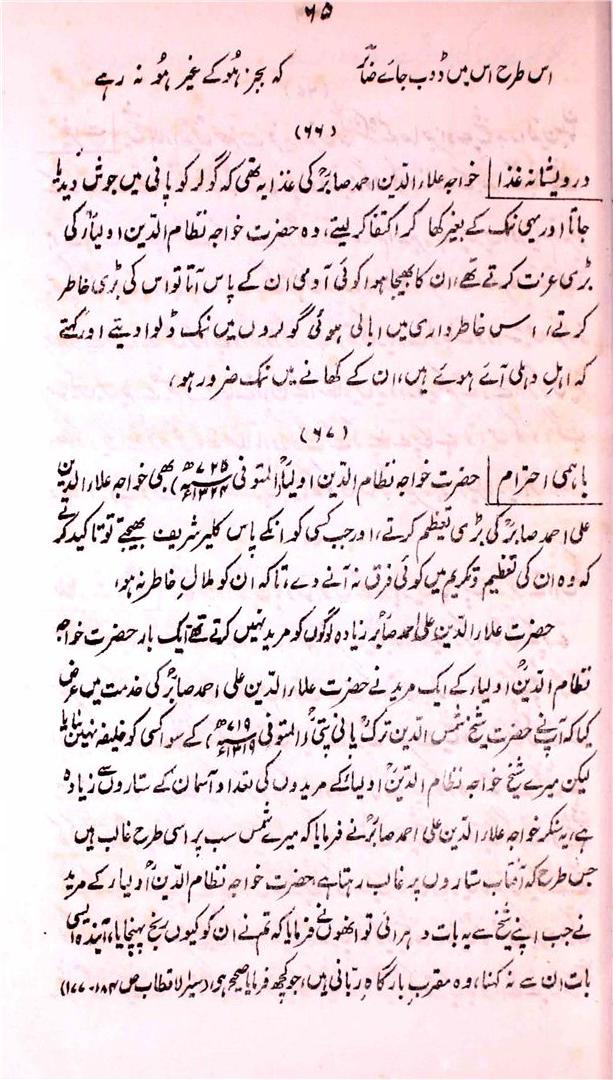 ۶۵
اس طرح اس میں ڈوب جائے صابرؔ کہ بجز ہُو کے غیر ہُو نہ رہے
(۶۶)
درویشانہ غذا خواجہ علاء الدین احمد صابرؒ کی غذا یہ تھی کہ گولر کو پانی میں جوش دیدیا
جاتا اور یہی نمک کے بغیر کھا کر اکتفا کر لیتے، وہ حضرت خواجہ نظام الدین اولیاؒ کی
بڑی عزت کرتے تھے، ان کا بھیجا ہوا کوئی آدمی ان کے پاس آتا تو اس کی بڑی خاطر
کرتے، اس خاطر داری میں ابالی ہوئی گولروں میں نمک ڈلوا دیتے اور کہتے
کہ اہلِ دہلی آئے ہوئے ہیں، ان کے کھانے میں نمک ضرور ہو،
(۶۷)
باہمی احترام حضرت خواجہ نظام الدین اولیاؒ (المتوفی ۷۲۵ھ ۱۳۲۴ء) بھی خواجہ علاء الدین
علی احمد صابرؒ کی بڑی تعظیم کرتے، اور جب کسی کو انکے پاس کلیر شریف بھیجتے تو تاکید کرتے
کہ وہ ان کی تعظیم و تکریم میں کوئی فرق نہ آنے دے، تاکہ ان کو ملالِ خاطر نہ ہو،
حضرت علاء الدین علی احمد صابر زیادہ لوگوں کو مرید نہیں کرتے تھے ایک بار حضرت خواجہ
نظام الدینؒ اولیاء کے ایک مرید نے حضرت علاء الدین علی احمد صابرؒ کی خدمت میں عرض
کیا کہ آپنے حضرت شیخ شمس الدین ترک پانی پتیؒ (المتوفی ۷۱۹ھ ۱۳۱۹ء) کے سوا کسی کو خلیفہ نہیں بنایا
لیکن میرے شیخ خواجہ نظام الدینؒ اولیاء کے مریدوں کی تعداد آسمان کے ستاروں سے زیادہ
ہے، یہ سنکر خواجہ علاء الدین علی احمد صابرؒ نے فرمایا کہ میرے شمس سب پر اسی طرح غالب ہیں
جس طرح کہ آفتاب ستاروں پر غالب رہتا ہے، حضرت خواجہ نظام الدینؒ اولیاء کے مرید
نے جب اپنے شیخ سے یہ بات دہرائی تو انھوں نے فرمایا کہ تم نے ان کو کیوں رنج پہنچایا، آیندہ ایسی
بات ان سے نہ کہنا، وہ مقربِ بارگاہِ ربّانی ہیں، جو کچھ فرمایا صحیح ہو، (سیر الاقطاب ص ۱۸۴-۱۷۷)